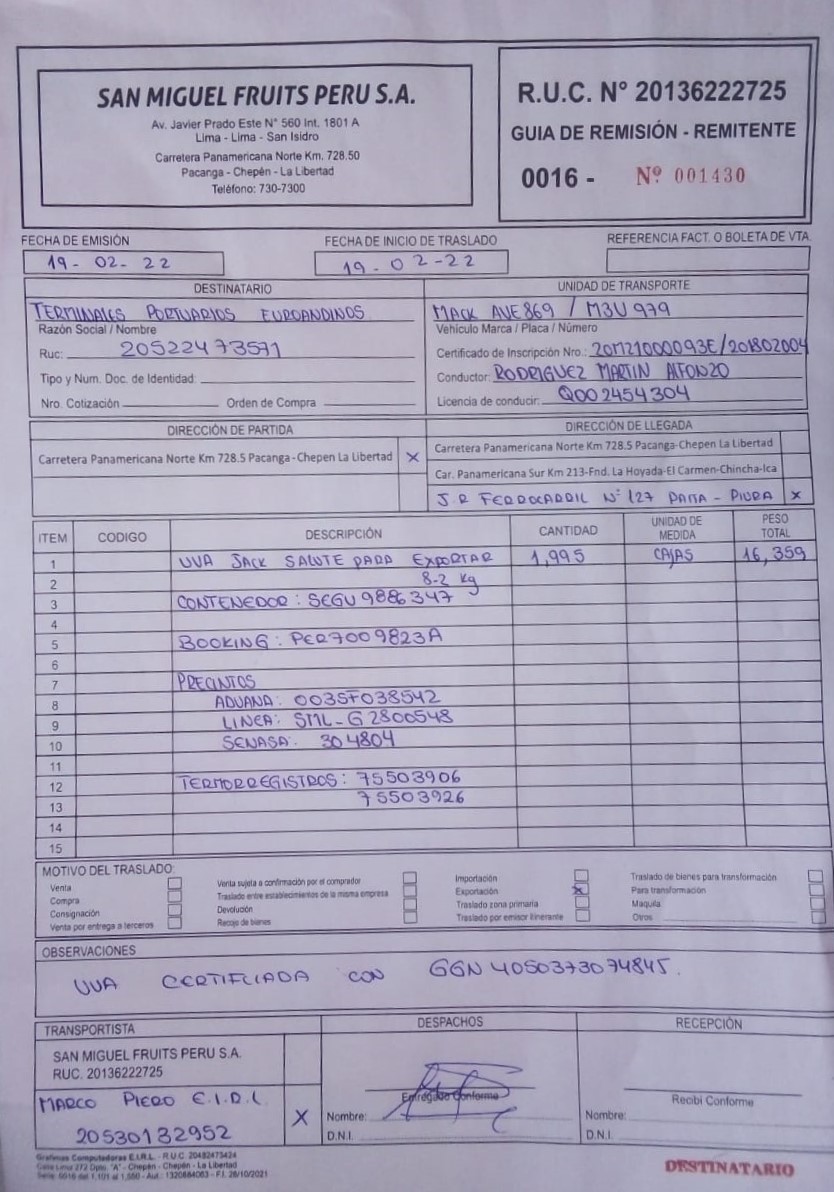 SAN MIGUEL FRUITS PERU S.A.
Av. Javier Prado Este N° 560 Int. 1801 A
Lima - Lima - San Isidro
Carretera Panamericana Norte Km. 728.50
Pacanga - Chepén - La Libertad
Teléfono: 730-7300
R.U.C. N° 20136222725
GUIA DE REMISIÓN - REMITENTE
0016 - Nº 001430
FECHA DE EMISIÓN
19-02-22
FECHA DE INICIO DE TRASLADO
19-02-22
REFERENCIA FACT. O BOLETA DE VTA.
DESTINATARIO
TERMINALES PORTUARIOS EUROANDINOS
Razón Social / Nombre
Ruc: 20522473571
Tipo y Num. Doc. de Identidad:
Nro. Cotización Orden de Compra
UNIDAD DE TRANSPORTE
MACK AVE869 / M3U 979
Vehículo Marca / Placa / Número
Certificado de Inscripción Nro.: 20M21000093E/201802004
Conductor: RODRIGUEZ MARTIN ALFONZO
Licencia de conducir: Q002454304
DIRECCIÓN DE PARTIDA
Carretera Panamericana Norte Km 728.5 Pacanga-Chepen La Libertad X
DIRECCIÓN DE LLEGADA
Carretera Panamericana Norte Km 728.5 Pacanga-Chepen La Libertad
Car. Panamericana Sur Km 213-Fnd. La Hoyada-El Carmen-Chincha-Ica
J.R FERROCARRIL N° 127 PAITA - PIURA X
ITEM CODIGO DESCRIPCIÓN CANTIDAD UNIDAD DE MEDIDA PESO TOTAL
1 UVA JACK SALUTE PARA EXPORTAR 1,995 CAJAS 16,359
2 8-2 kg
3 CONTENEDOR: SEGU 9886347
4
5 BOOKING: PER7009823A
6
7 PRECINTOS
8 ADUANA: 0035F038542
9 LINEA: SML-G2800548
10 SENASA: 304804
11
12 TERMORREGISTROS: 75503906
13 75503926
14
15
MOTIVO DEL TRASLADO:
Venta
Compra
Consignación
Venta por entrega a terceros
Venta sujeta a confirmación por el comprador
Traslado entre establecimientos de la misma empresa
Devolución
Recojo de bienes
Importación
Exportación X
Traslado zona primaria
Traslado por emisor itinerante
Traslado de bienes para transformación
Para transformación
Maquila
Otros
OBSERVACIONES
UVA CERTIFLIADA CON GGN 4050373074845.
TRANSPORTISTA
SAN MIGUEL FRUITS PERU S.A.
RUC. 20136222725
MARCO PIERO E.I.R.L X
20530132952
DESPACHOS
Entregado Conforme
Nombre:
D.N.I.
RECEPCIÓN
Recibi Conforme
Nombre:
D.N.I.
Graficas Computadoras E.I.R.L. - R.U.C. 20482475424
Calle Lima 272 Dpto. "A" - Chepén - Chepén - La Libertad
Serie: 0016 del 1,101 al 1,550 - Aut.: 1320884063 - F.I. 26/10/2021
DESTINATARIO